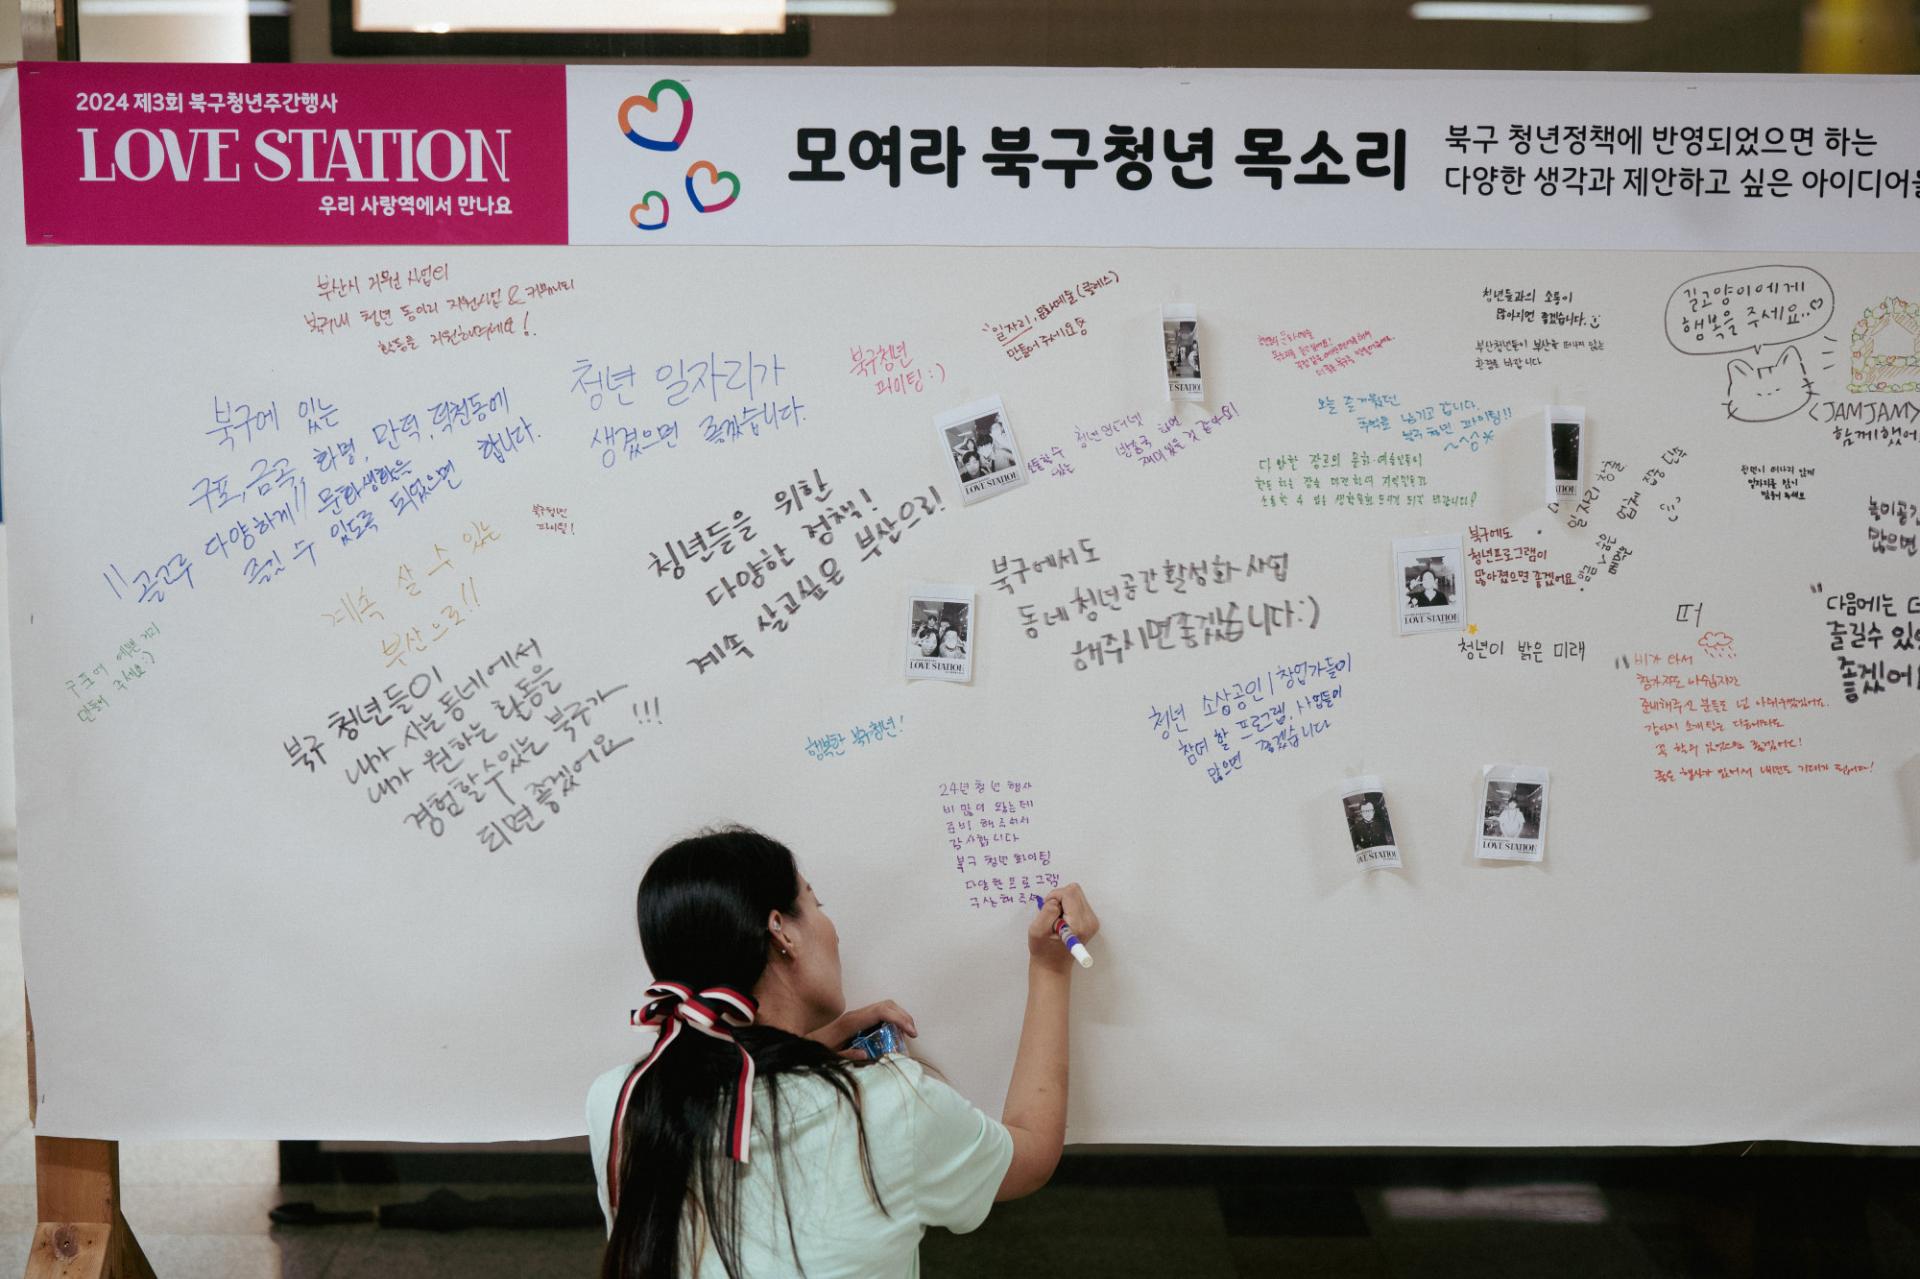 2024 제3회 북구청년주간행사
LOVE STATION
우리 사랑역에서 만나요
모여라 북구청년 목소리
북구 청년정책에 반영되었으면 하는
다양한 생각과 제안하고 싶은 아이디어를
부산시 지원 사업이
북구내 청년 동아리 지원사업 & 커뮤니티
활동을 지원해주세요!.
북구에 있는
구포, 금곡, 화명, 만덕, 덕천동에
골고루 다양하게!! 문화생활을
즐길 수 있도록 되었으면 합니다.
청년 일자리가
생겼으면 좋겠습니다.
북구청년
파이팅:)
"일자리, 문화예술(클래스)
만들어 주세요
북구청년
파이팅!
계속 살 수 있는
부산으로!!
구포에 예쁜 거리
만들어 주세요:)
청년들을 위한
다양한 정책!
계속 살고싶은 부산으로!
북구 청년들이
내가 사는 동네에서
내가 원하는 활동을
경험할 수 있는 북구가
되면 좋겠어요!!!
북구에서도
동네 청년공간 활성화 사업
해주시면 좋겠습니다:)
행복한 북구청년!
청년 소상공인/창업가들이
참여 할 프로그램, 사업들이
많으면 좋겠습니다
24년 청년 행사
비 많이 왔는데
준비 해주셔서
감사합니다
북구 청년 화이팅
다양한 프로그램
구상해 주세
오늘 즐거웠던
추억을 남기고 갑니다.
북구 청년 파이팅!!
다양한 장르의 문화·예술인들이
청년들과의 소통이
많아지면 좋겠습니다.
부산청년들이 부산을 떠나지 않는
환경을 바랍니다
길고양이에게
행복을 주세요..♡
<JAMJAM>
함께했어
북구에도
청년프로그램이
많아졌으면 좋겠어요.
일자리 창출
업계 집중 단속
청년이 밝은 미래
청년이 떠나지 않게
일자리를 많이
만들어 주세요
놀이공간
많으면
"다음에는 더
즐길수 있
좋겠어
비가 와서
준비해주신 분들도 넘 아쉬우셨겠어요.
꼭 할 수 있었으면 좋겠어요!
좋은 행사가 있어서 내년도 기대가 됩니다!
LOVE STATION
LOVE STATION
LOVE STATION
LOVE STATION
LOVE STATION
LOVE STATION
LOVE STATION